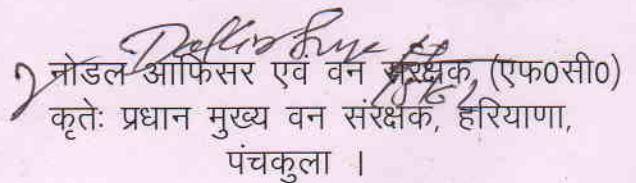 नोडल आफिसर एवं वन संरक्षक (एफ०सी०)
कृतेः प्रधान मुख्य वन संरक्षक, हरियाणा,
पंचकुला ।